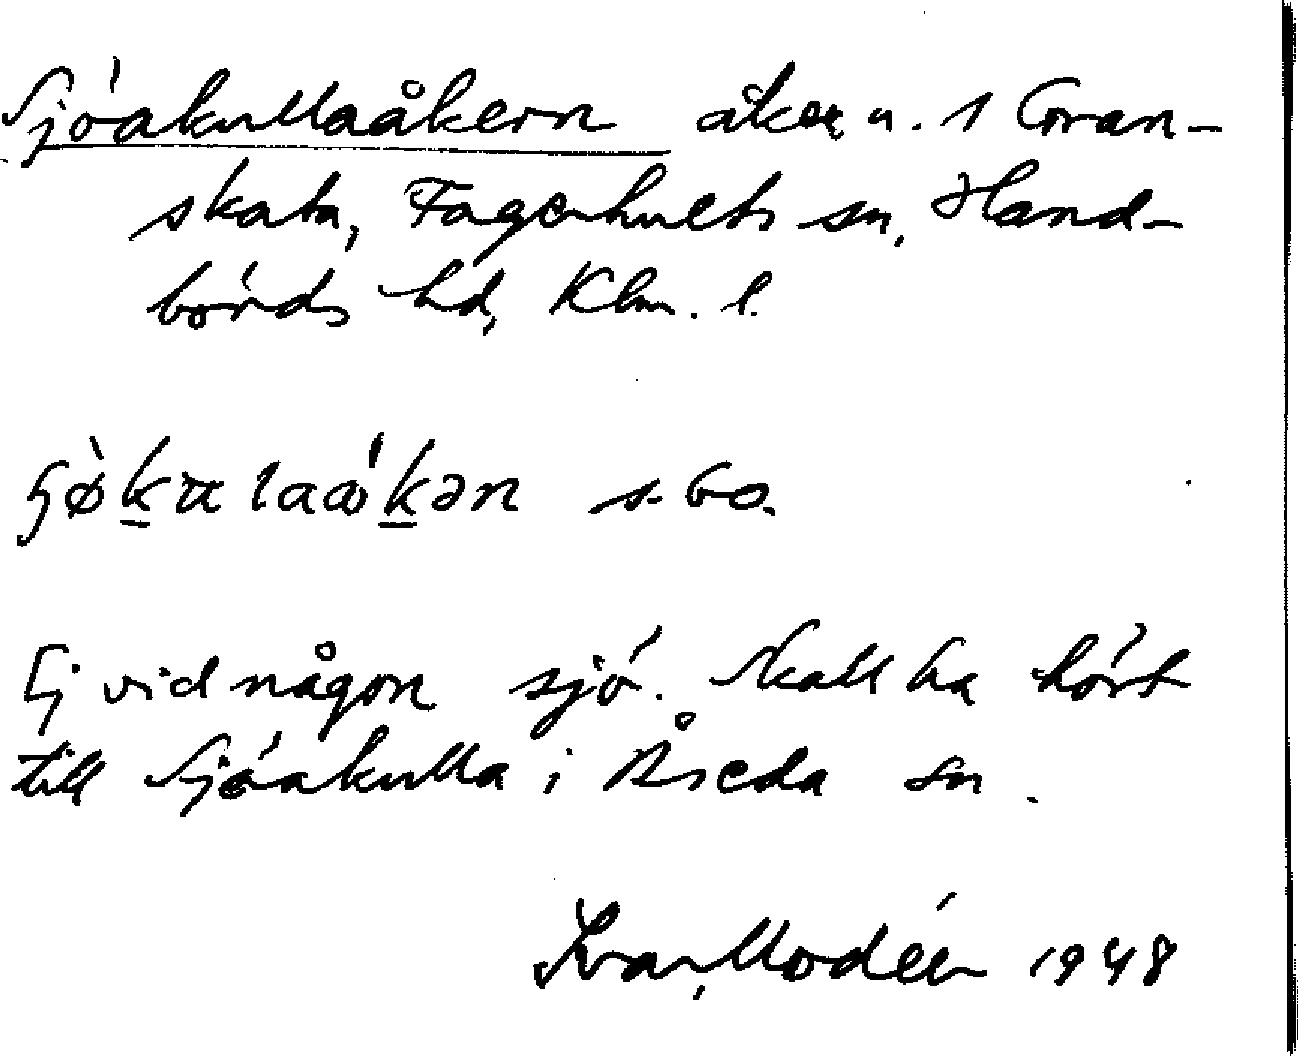 Sjöakullaåkern åker u. 1 Gran-
skata, Fagerhults sn, Hand-
börds hd, Klm. l.
s. bo.
Ej vid någon sjö. Skall ha hört
till Sjöakulla i Åseda sn.
Ivar Modéer 1948